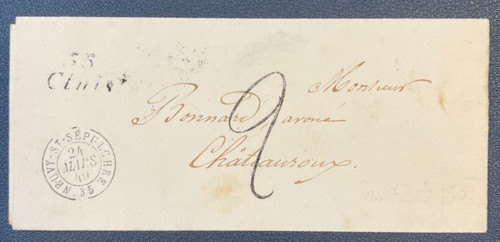 35
Cluis
Monsieur
Bonnard avoué
Châteauroux.
2
NEUVY-ST-SÉPULCHRE
24
MARS
49
35